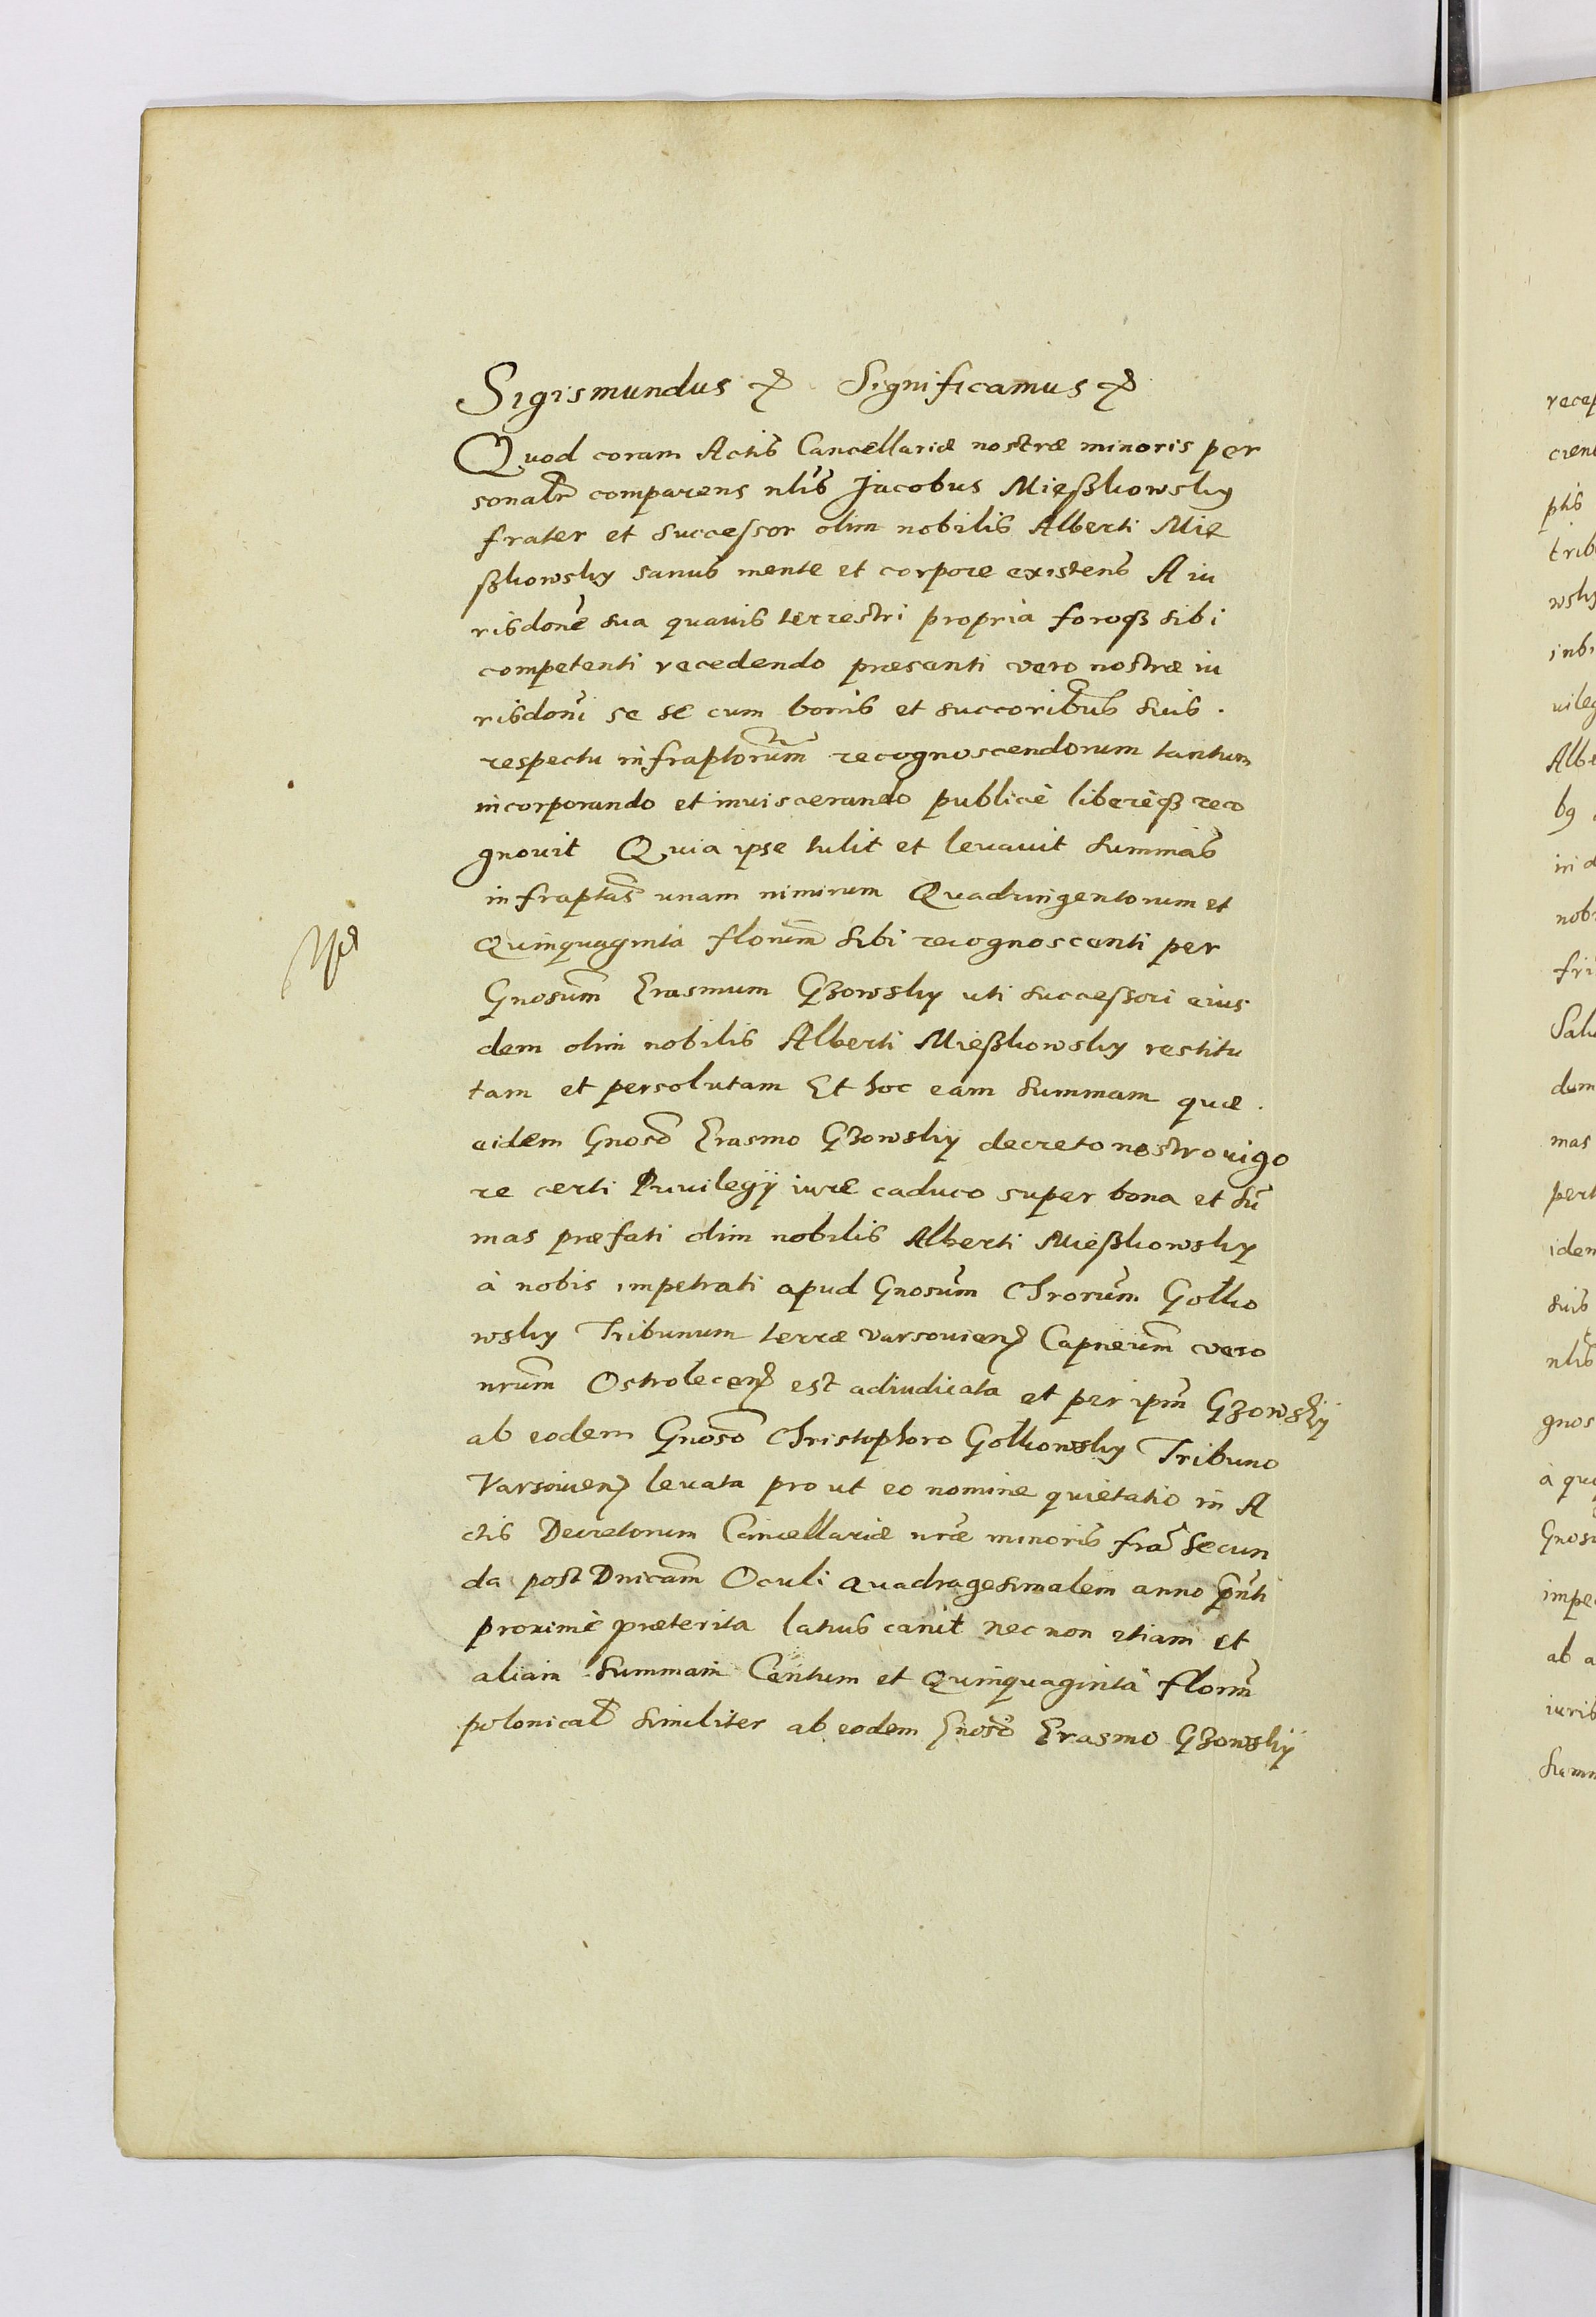 Sigismundus etc Significamus etc
Quod coram Actis Cancellariæ nostræ minoris per
sonalr comparens nlis Jacobus Mießkowsky
frater et successor olim nobilis Alberti Mie
ßkowsky sanus mente et corpore existens A iu
risdone sua quavis terrestri propria foroqʒ sibi
competenti recedendo præsenti vero nostræ iu
risdoni se se cum bonis et succoribus suis.
respectu infraptorum recognoscendorum tantum
incorporando et inviscerando publicè liberèqʒ reco
gnovit Quia ipse tulit et levavit summas
infraptas unam nimirum Quadringentorum et
Quinquaginta florenm sibi recognoscenti per
Gnosum Erasmum Gzowsky uti successori eius
dem olim nobilis Alberti Mießkowsky restitu
tam et persolutam Et hoc eam summam quæ.
eidem Gnoso Erasmo Gzowsky decreto nostro vigo
re certi Privilegÿ iure caduco super bona et sum
mas præfati olim nobilis Alberti Mießkowsky
à nobis impetrati apud Gnosum Chrorum Golko
wsky Tribunum terræ varsovien Capneum vero
nrum Ostrolecen est adiudicata et per ipm Gzowskÿ
ab eodem Gnoso Christophoro Gołkowsky Tribuno
Varsovien levata pro ut eo nomine quietatio in A
ctis Decretorum Cancellariæ nræ minoris fra secun
da post Dnicam Oculi quadragesimalem anno pnti
proximè præterita latius canit nec non etiam et
aliam summam Centum et Quinquaginta florm
polonical similiter ab eodem Gnoso Erasmo Gzowskÿ
recep
cien
ptis
trib
wsky
inbi
uileg
Albe
b9
in d
nobi
fri
Salu
dum
mas
pert
iden
suis
nlis
gnos
à quo
Gnosu
impe
ab a
iurib
summ